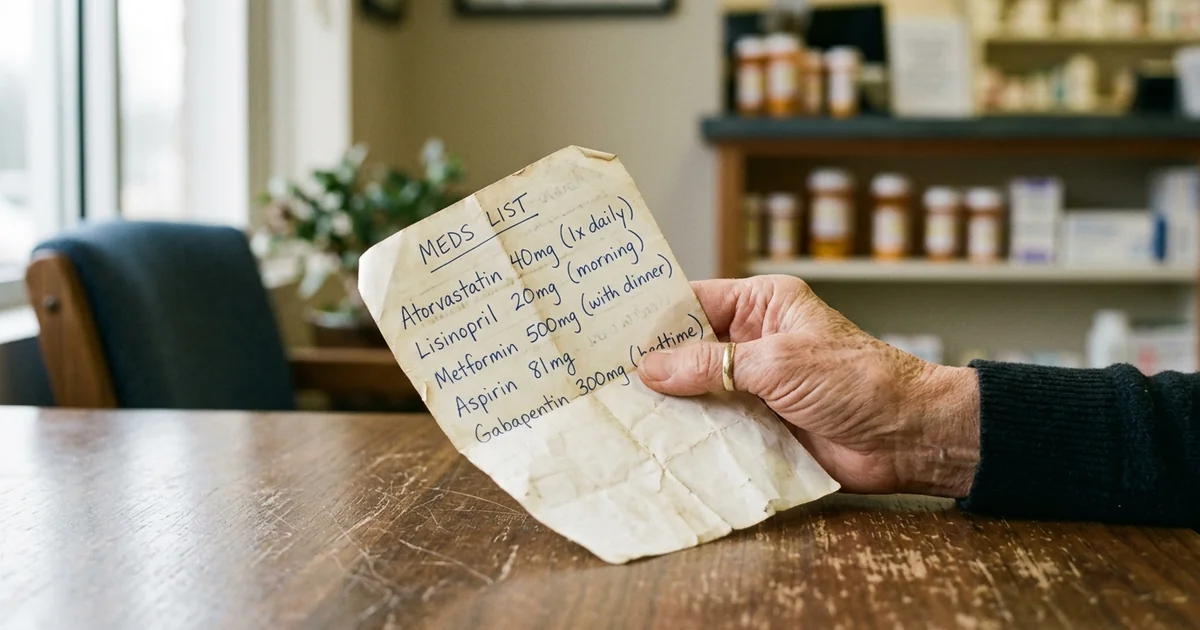 MEDS LIST
Atorvastatin 40mg (1x daily)
Lisinopril 20mg (morning)
Metformin 500mg (with dinner)
Aspirin 81mg
Gabapentin 300mg (bedtime)